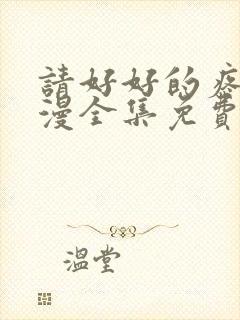 請好好的疼
漫全集免費
溫堂